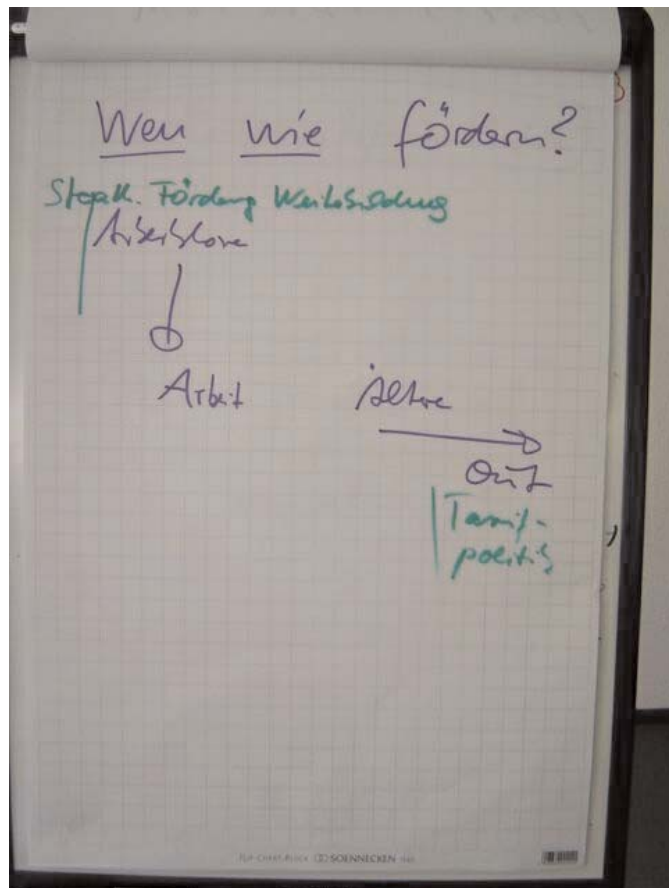 Wen wie fördern?
Staatl. Förderung Weiterbildung
Arbeitslose
Arbeit
Ältere
Out
Tarif-
politik
SOENNECKEN